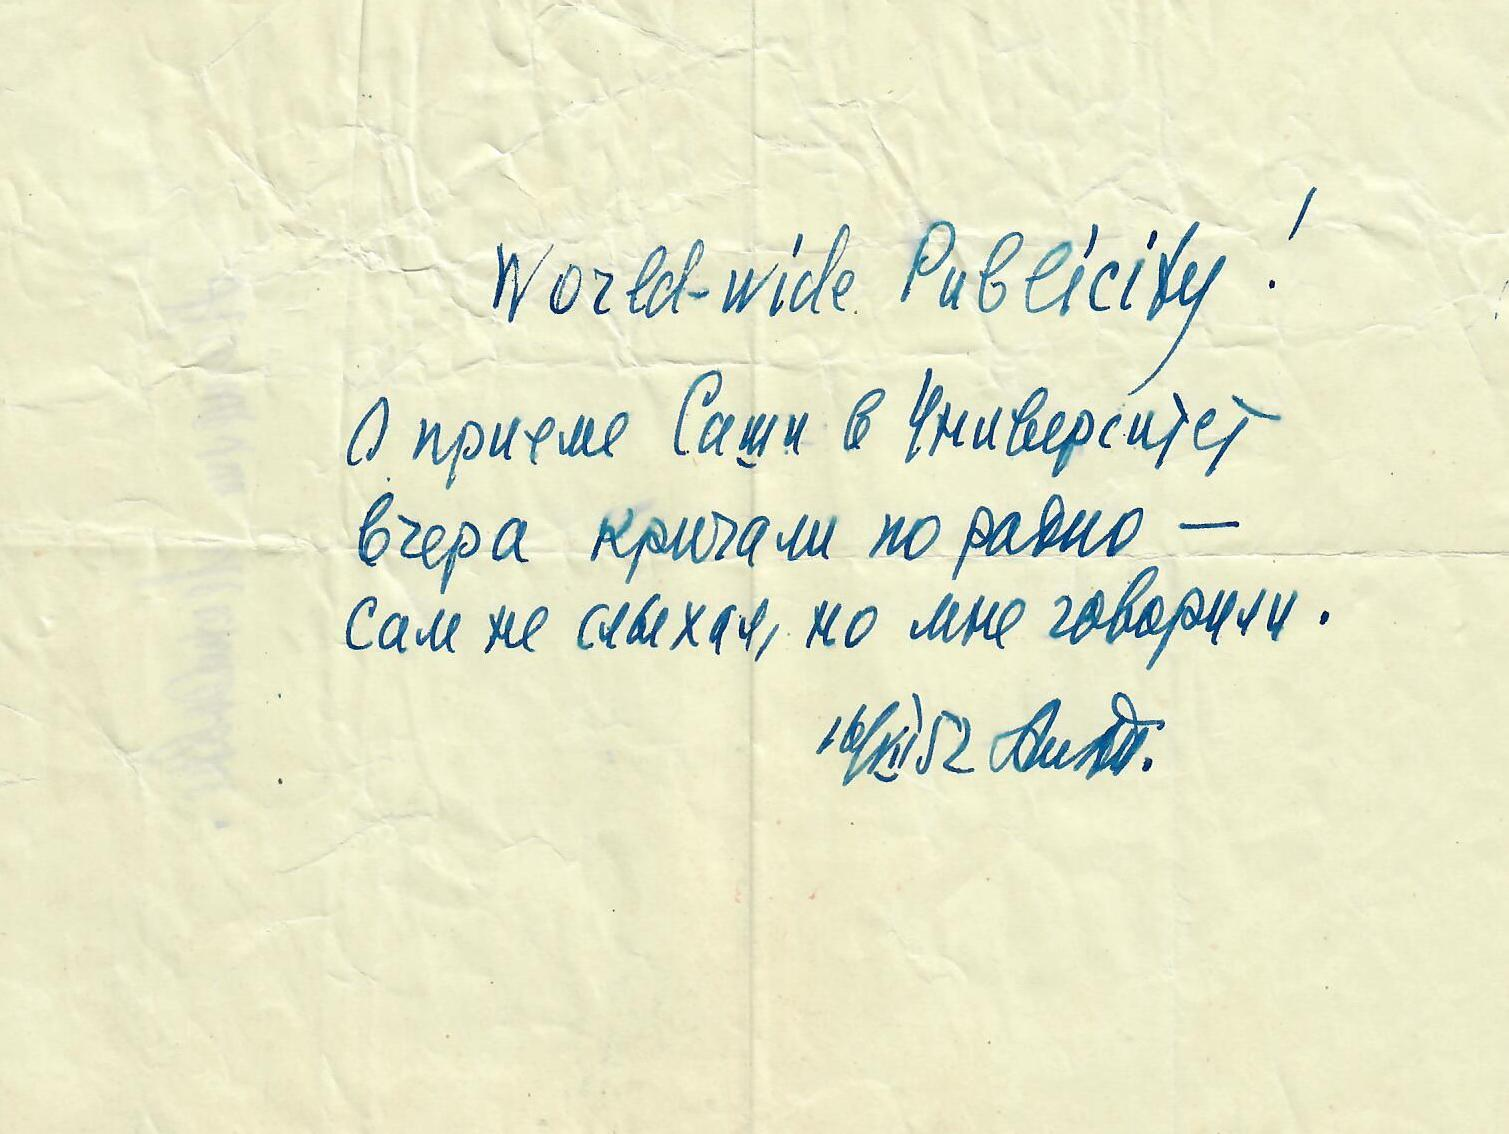 World-wide Publicity!
О приеме Саши в Университет
вчера кричали по радио —
Сам не слыхал, но мне говорили.
52